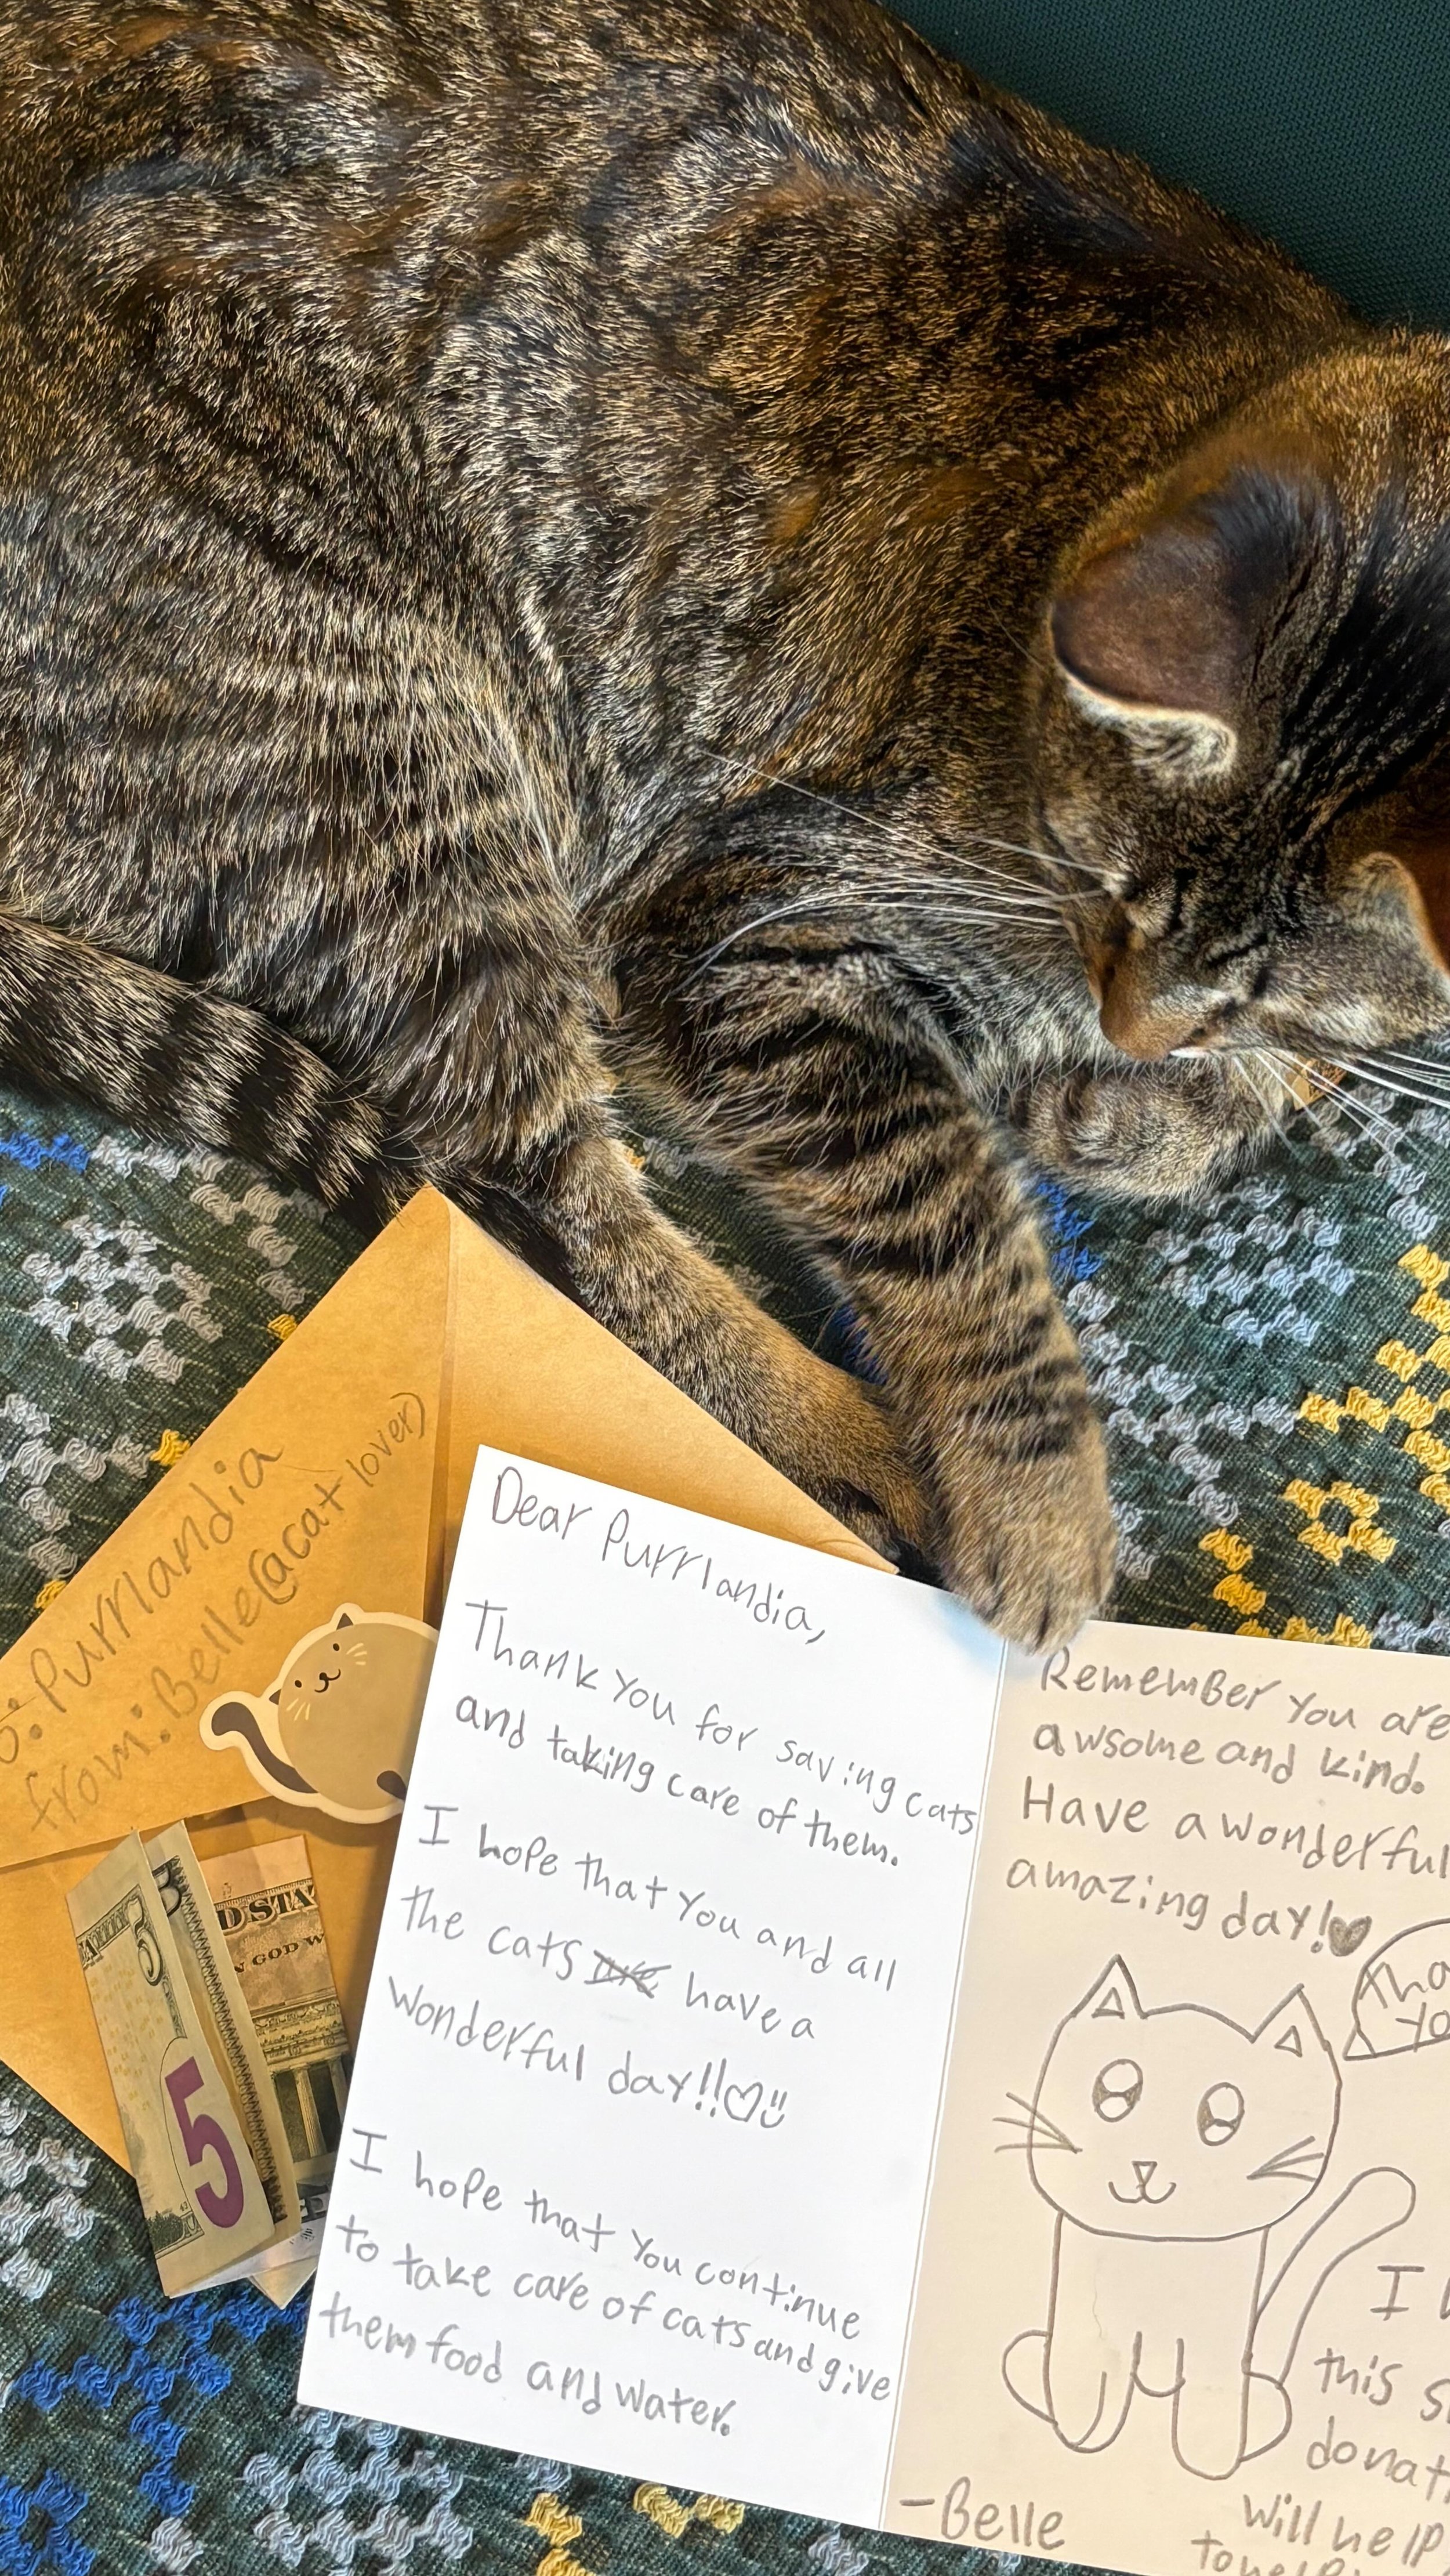 Purrlandia
from: Belle (a cat lover)
5
5
D STA
N GOD W
Dear Purrlandia,
Thank you for saving cats
and taking care of them.
I hope that you and all
the cats have a
wonderful day!!
I hope that you continue
to take care of cats and give
them food and water.
Remember you are
awsome and kind.
Have a wonderful
amazing day!
I
this
will help
-Belle